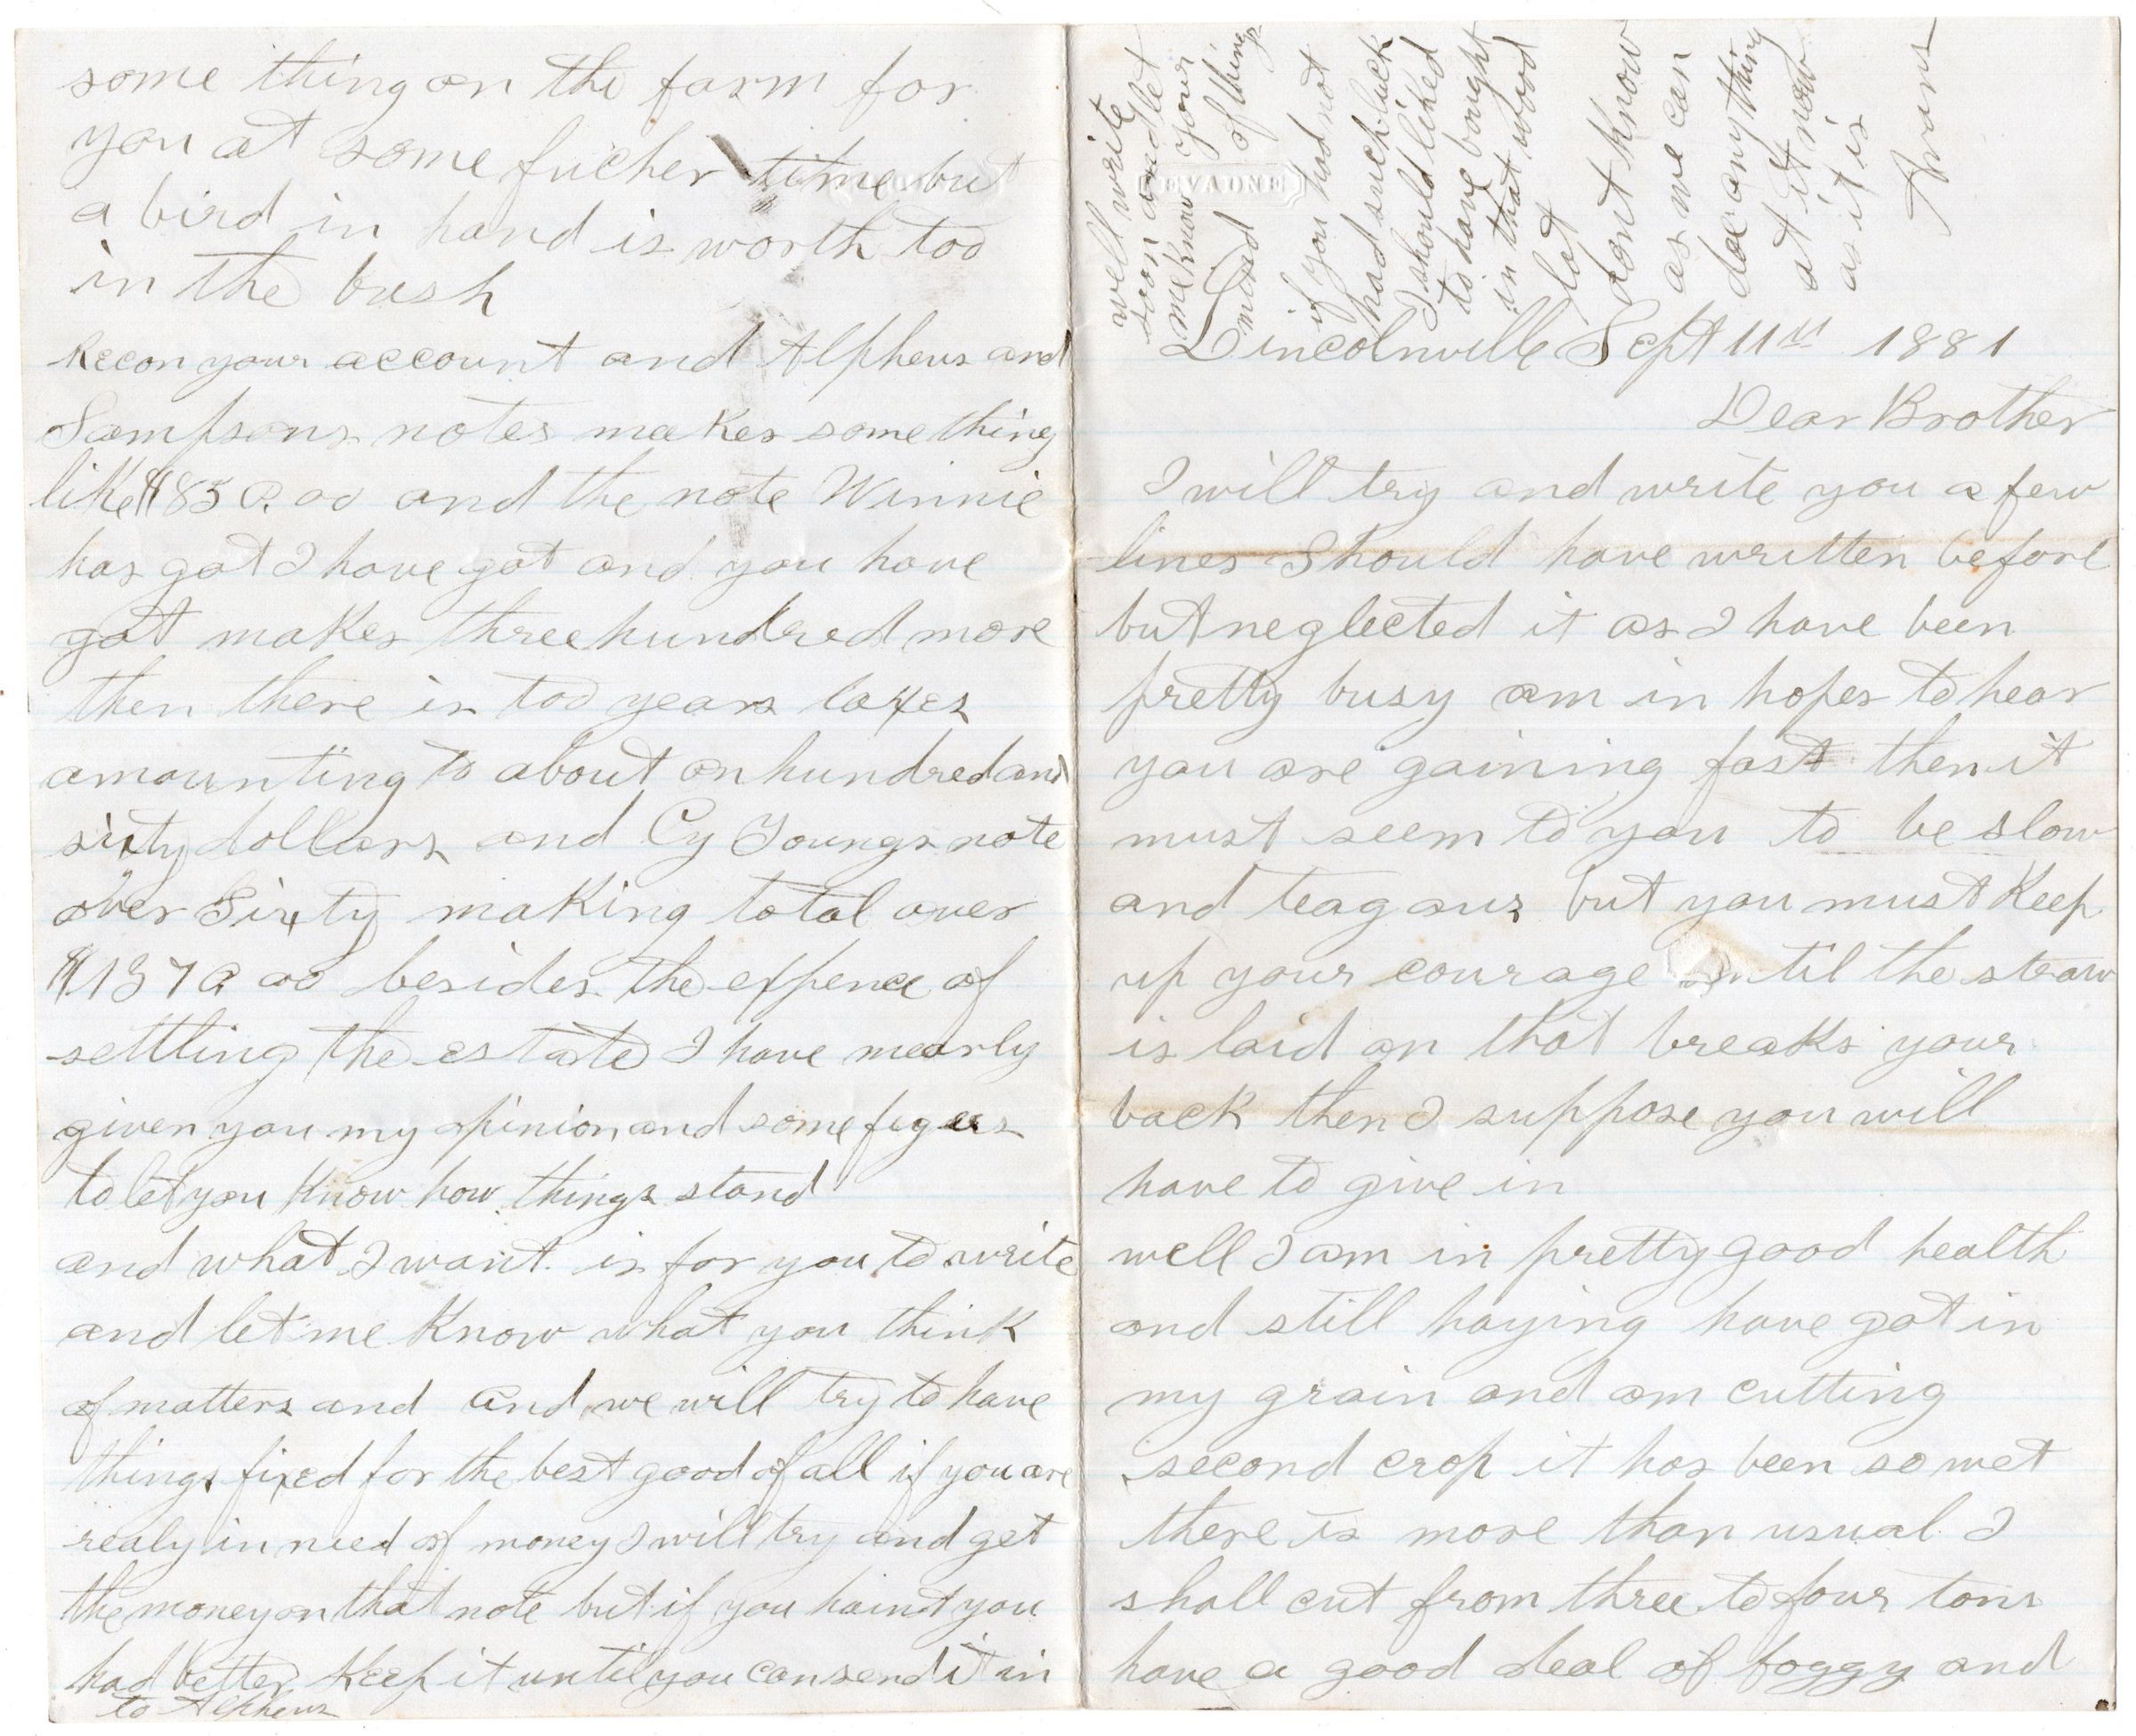 Lincolnville Sept 11th 1881
Dear Brother
I will try and write you a few
lines Should have written before
but neglected it as I have been
pretty busy am in hopes to hear
you are gaining fast then it
must seem to you to be slow
and teagous but you must Keep
up your courage until the straw
is laid on that breaks your
back then I suppose you will
have to give in
well I am in pretty good health
and still haying have got in
my grain and am cutting
second crop it has been so wet
there is more than usual I
shall cut from three to four tons
have a good deal of foggy and
some thing on the farm for
you at some fucher time but
a bird in hand is worth too
in the bush
Recon your account and Alpheus and
Sampsons notes makes some thing
like $850.00 and the note Winnie
has got I have got and you have
got makes three hundred more
then there is too years taxes
amounting to about on hundred and
sixty dollars and Cy Youngs note
over Sixty making total over
$1370 00 besides the expence of
settling the estate I have mearly
given you my opinion and some figers
to let you Know how things stand
and what I want is for you to write
and let me Know what you think
of matters and and we will try to have
things fixed for the best good of all if you are
realy in need of money I will try and get
the money on that note but if you haint you
had better Keep it until you can send it in
to Alpheus
well write
soon and let
me know your
mind of things
if you had not
had such luck
I should liked
to have bought
in that wood
lot
dont Know
as we can
doe any thing
at it now
as it is
Avans
EVADNE